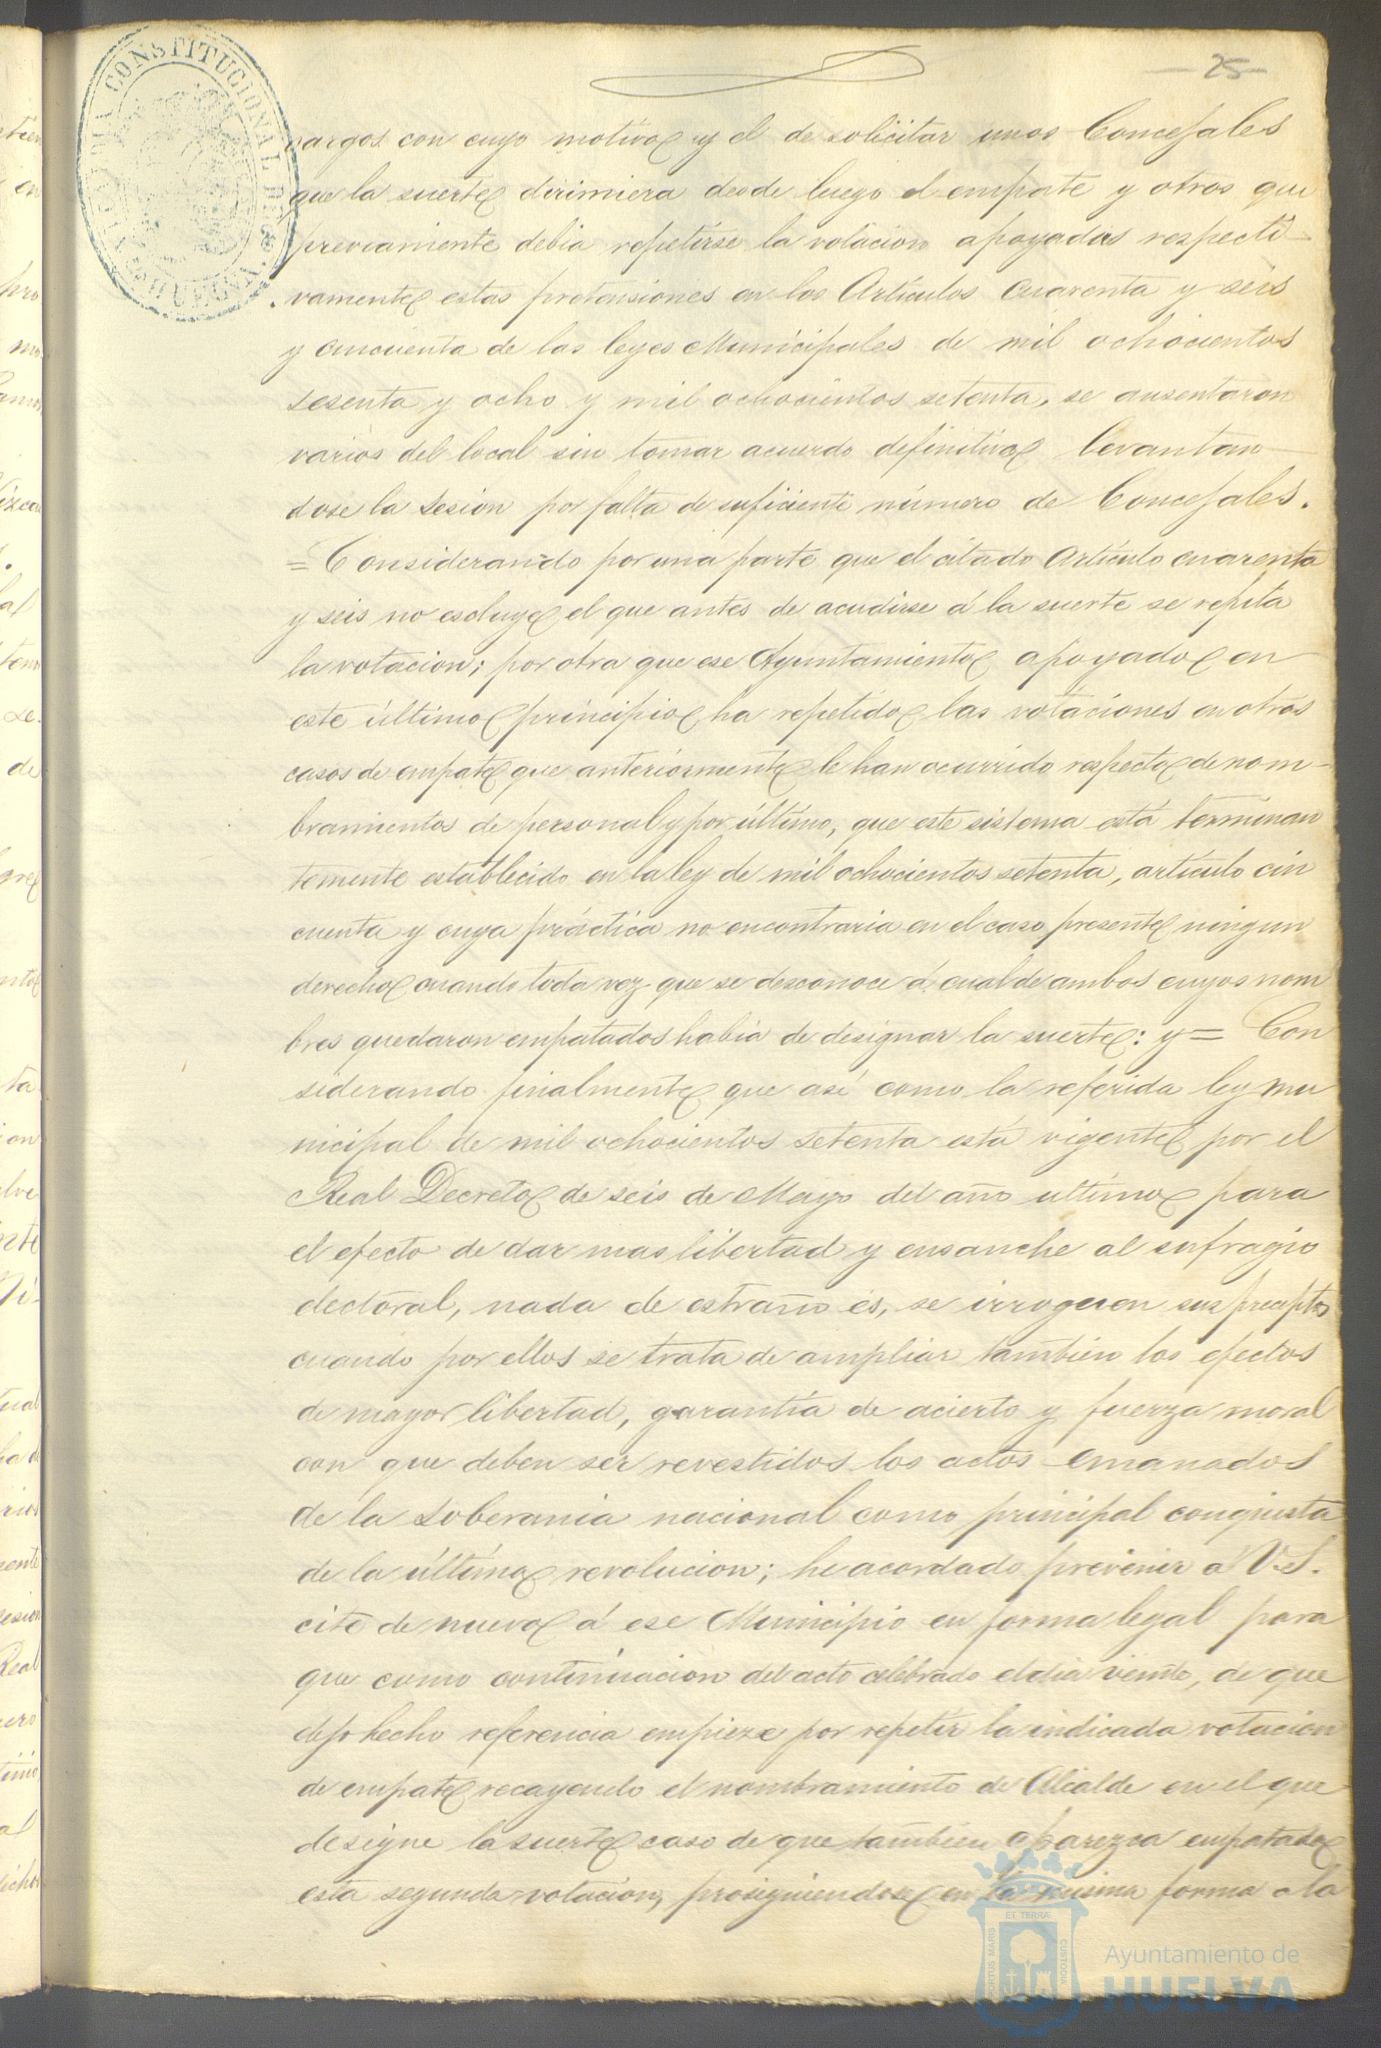 25
ALCALDIA CONSTITUCIONAL DE HUELVA
cargos con cuyo motivo y el de solicitar unos Concejales
que la suerte dirimiera desde luego el empate y otros que
previamente debia repetirse la votacion apoyadas respecti
vamente estas pretensiones en los Artículos cuarenta y seis
y cincuenta de las leyes Municipales de mil ochocientos
sesenta y ocho y mil ochocientos setenta, se ausentaron
varios del local sin tomar acuerdo definitivo levantan
dose la sesion por falta de suficiente número de Concejales.
= Considerando por una parte que el citado Artículo cuarenta
y seis no escluye el que antes de acudirse á la suerte se repita
la votacion; por otra que ese Ayuntamiento apoyado en
este último principio ha repetido las votaciones en otros
casos de empate que anteriormente le han ocurrido respecto de nom-
bramientos de personal y por último, que este sistema está terminan
temente establecido en la ley de mil ochocientos setenta, artículo cin
cuenta y cuya práctica no encontraria en el caso presente ningun
derecho cuando toda vez que se desconoce á cual de ambos cuyos nom
bres quedaron empatados habia de designar la suerte: y = Con
siderando finalmente que asi como la referida ley mu
nicipal de mil ochocientos setenta está vigente por el
Real Decreto de seis de Mayo del año ultimo para
el efecto de dar mas libertad y ensanche al sufragio
electoral, nada de estraño es, se irroguen sus preceptos
cuando por ellos se trata de ampliar tambien los efectos
de mayor libertad, garantía de acierto y fuerza moral
con que deben ser revestidos los actos emanados
de la soberania nacional como principal conquista
de la última revolucion; he acordado prevenir á V.S.
cite de nuevo á ese Municipio en forma legal para
que como continuacion del acto celebrado el dia veinte, de que
dejo hecho referencia empieze por repetir la indicada votacion
de empate recayendo el nombramiento de Alcalde en el que
designe la suerte caso de que tambien aparezca empatada
esta segunda votacion, prosiguiendose en la misma forma a la
PORTUS MARIS ET TERRÆ CUSTODIA
Ayuntamiento de
HUELVA